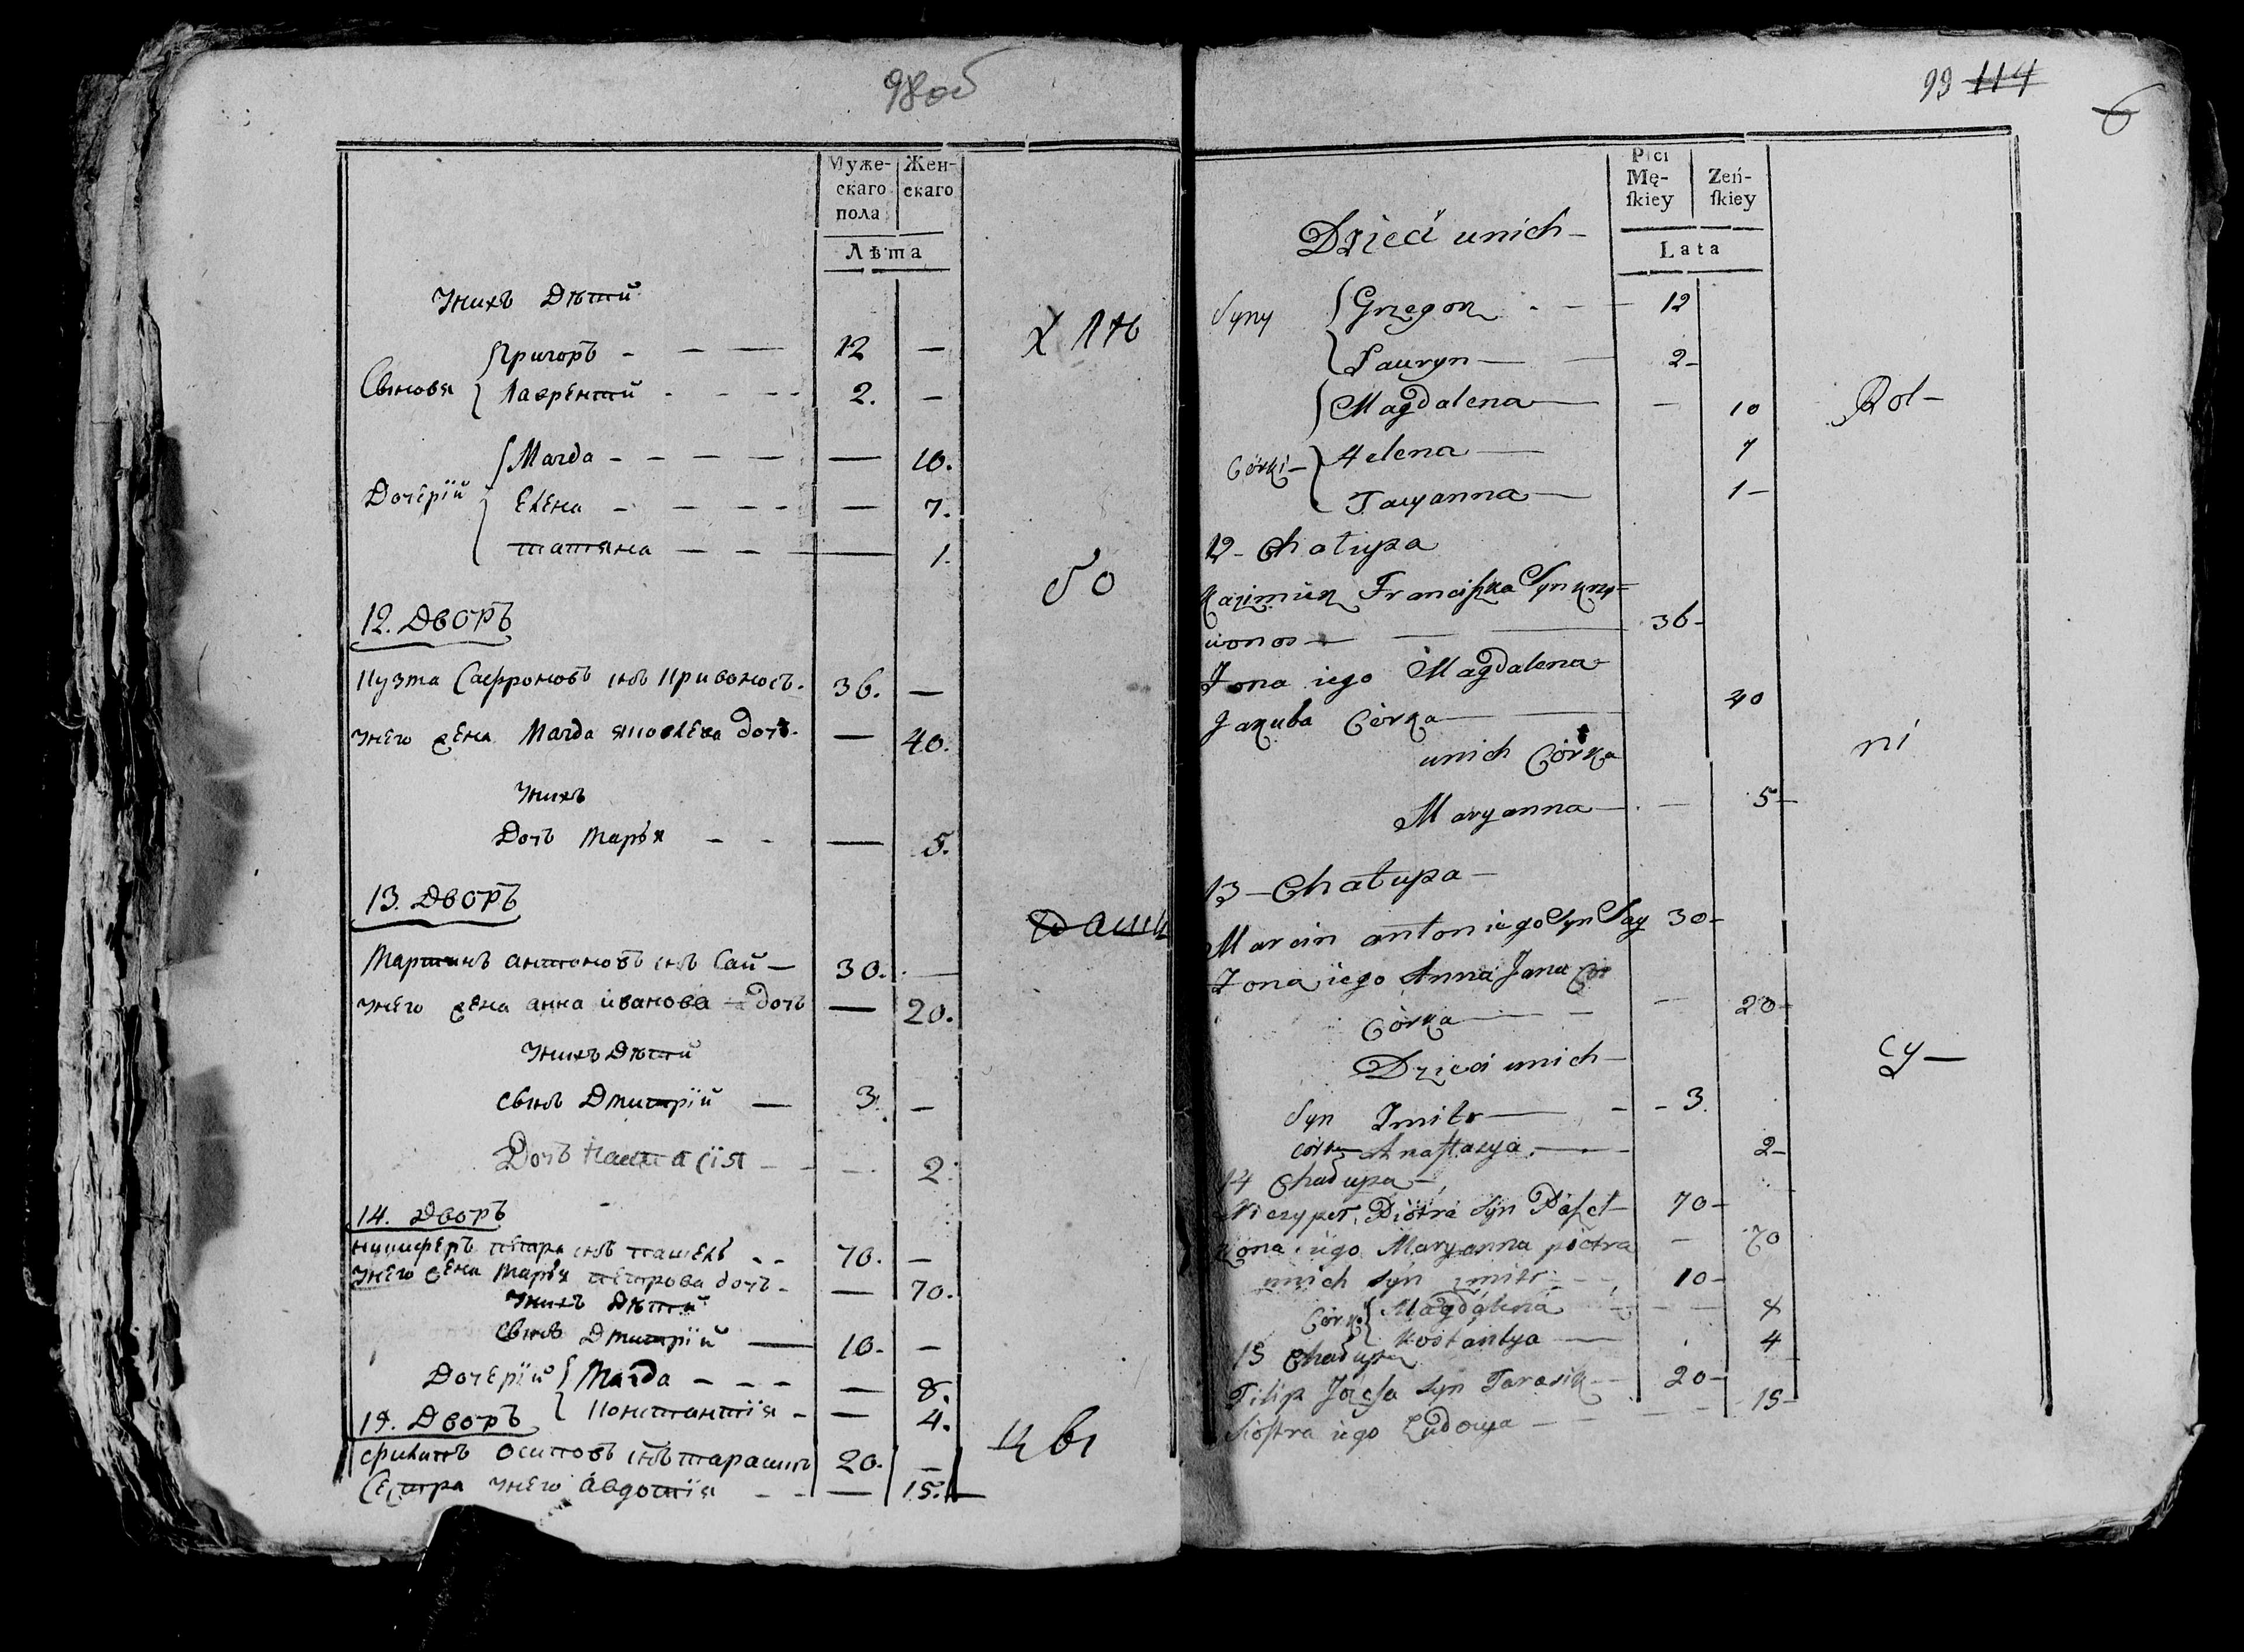 98об
Муже-
скаго
пола
Жен-
скаго
Лѣта
Унихъ Дѣтй
Сыновя
Григоръ - - — 12 —
Лаврентй - - -- 2. —
Дочерїй
Магда - - - — — 10.
Елена - - - - — 7.
татяна — - — — 1.
12. Дворъ
Кузма Сафроновъ снъ Кривоносъ. 36. —
Унего жена Магда яковлева дочъ. — 40.
Унихъ
Дочъ Маръя - - — 5.
13. Дворъ
Мартинъ антоновъ снъ Сай — 30. —
Унего жена анна иванова дочъ — 20.
Унихъ Дѣтй
сынъ Дмитрїй — 3. —
Дочъ Настасїя - - — 2.
14. Дворъ
Ничиферъ петра снъ пашекъ - - 70. —
Унего жена Маръя петрова дочъ - — 70.
Унихъ Дѣтй
сынъ Дмитрїй — 10. —
Дочерїй
Магда - - - — 8.
Константїя - — 4.
15. Дворъ
филипъ осиповъ снъ тарасикъ 20. —
Сестра Унего авдотїя - - — 15.
хлѣ
бо
цы
99 114
6
Płci
Mę-
ſkiey
Zeń-
ſkiey
Lata
Dzieci unich -
Syny
Grzegorz - — 12
Lauryn — — 2-
Magdalena — — 10
Córki -
Helena — 7
Tacyanna — 1-
12 - Chałupa
Kazimierz Franciſzka Syn Krzy=
wonos — — — 36-
Zona iego Magdalena
Jakuba Córka — — 40
unich Córka
Maryanna — - — 5-
13 — Chałupa —
Marcin antoniego Syn Say 30-
Zona iego Anna Jana Cor
Córka — - — 20-
Dzieci unich —
Syn Zmitr — - - 3.
Córka Anaſtazya — - 2-
14 Chałupa —
Niczyper Piotra Syn Paſzel — 70-
Zona iego Maryanna piotra — 70
unich Syn zmitr - - 10-
Córki
Magdalena - - — 8
Kostantya — 4
15 Chałupa
Filip Jozefa Syn Tarasik — 20-
Siostra iego Eudocya - - - 15-
Rol-
ni
cy —